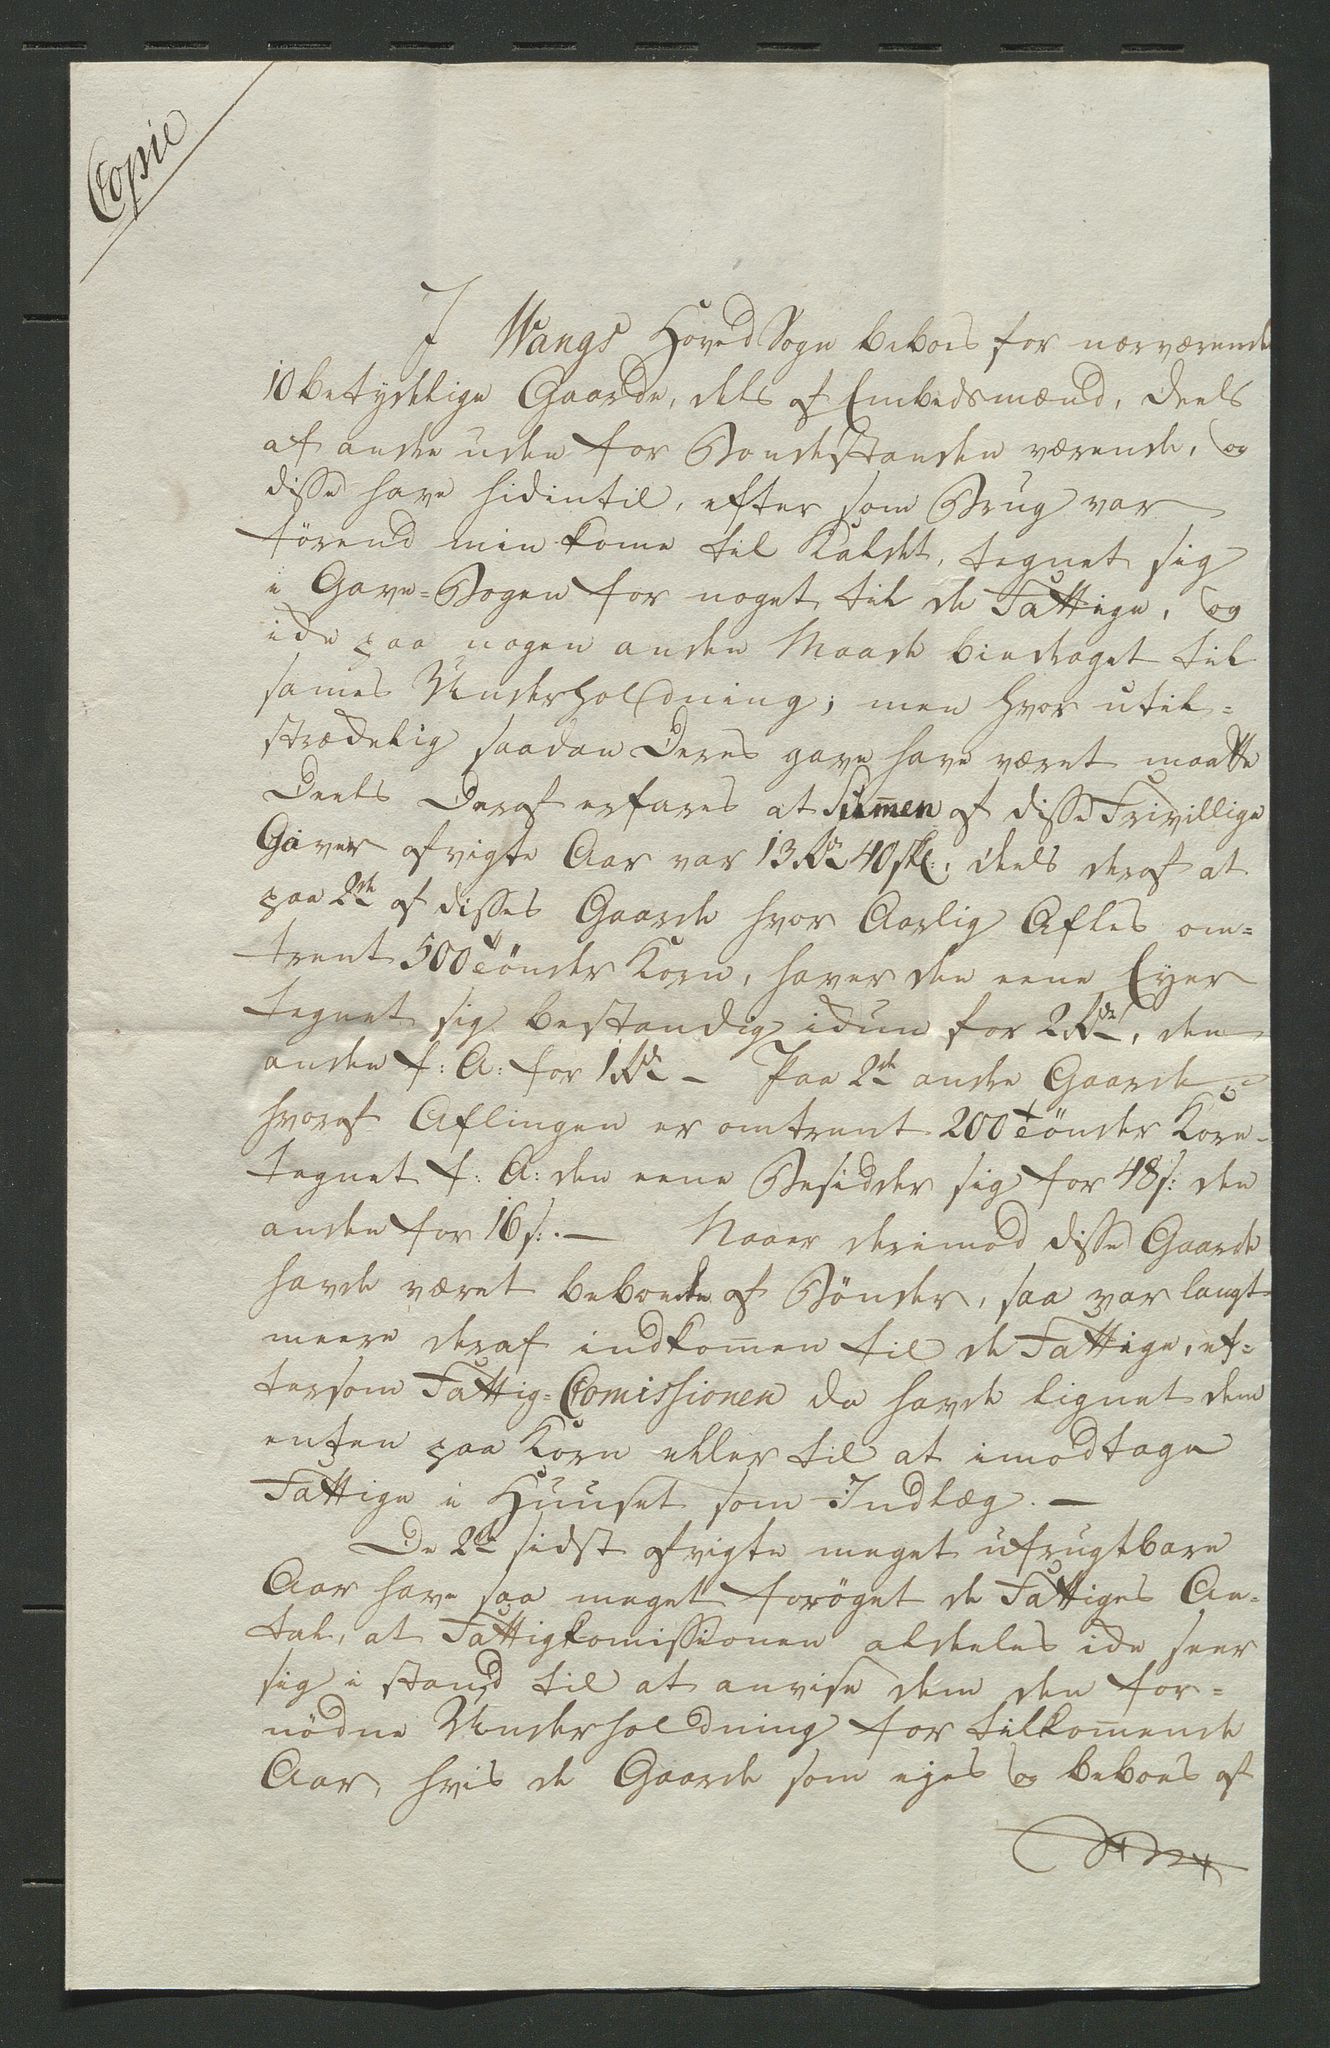 Copie
I Wangs Hoved Sogn beboes for nærværende
10 betydelige Gaarde, dels af Embedsmænd, deels
af andre uden for Bondestanden værende, og
disse have hidintil, efter som Brug var
førend min kome til Kaldet, tegnet sig
i Gave=Bogen for noget til de Fattige, og
icke paa nogen anden Maade bindraget til
sames Underholdning; men hvor util=
strædelig saadan Deres gave have været maatte
Deels Deraf erfares at Sum̅en af disse Frivillige
Gaver afvigte Aar var 13 Rdr 40 skl:, deels deraf at
paa 2de af disses Gaarde hvor Aarlig Afles om=
trent 500 Tønder Korn, haver den eene Eyer
tegnet sig bestandig ickun for 2 Rdr, den
anden f: A: for 1 Rdr – Paa 2de andre Gaarde
hvoraf Aflingen er omtrent 200 Tønder Korn
tegnet f: A: den eene Besidder sig for 48 s: den
anden for 16 s:. — Naar derimod disse Gaarde
havde været beboede af Bønder, saa var langt
meere deraf indkom̅en til de Fattige, ef=
tersom Fattig=Comissionen da havde lignet dem
enten paa Korn eller til at imodtage
Fattige i Huuset som Indlæg. —
De 2de sidst afvigte meget ufrugtbare
Aar have saa meget forøget de Fattiges An=
tal, at Fattigkomissionen aldeles icke seer
sig i stand til at anvise dem den for=
nødne Underholdning for tilkom̅ende
Aar, hvis de Gaarde som ejes og beboes af